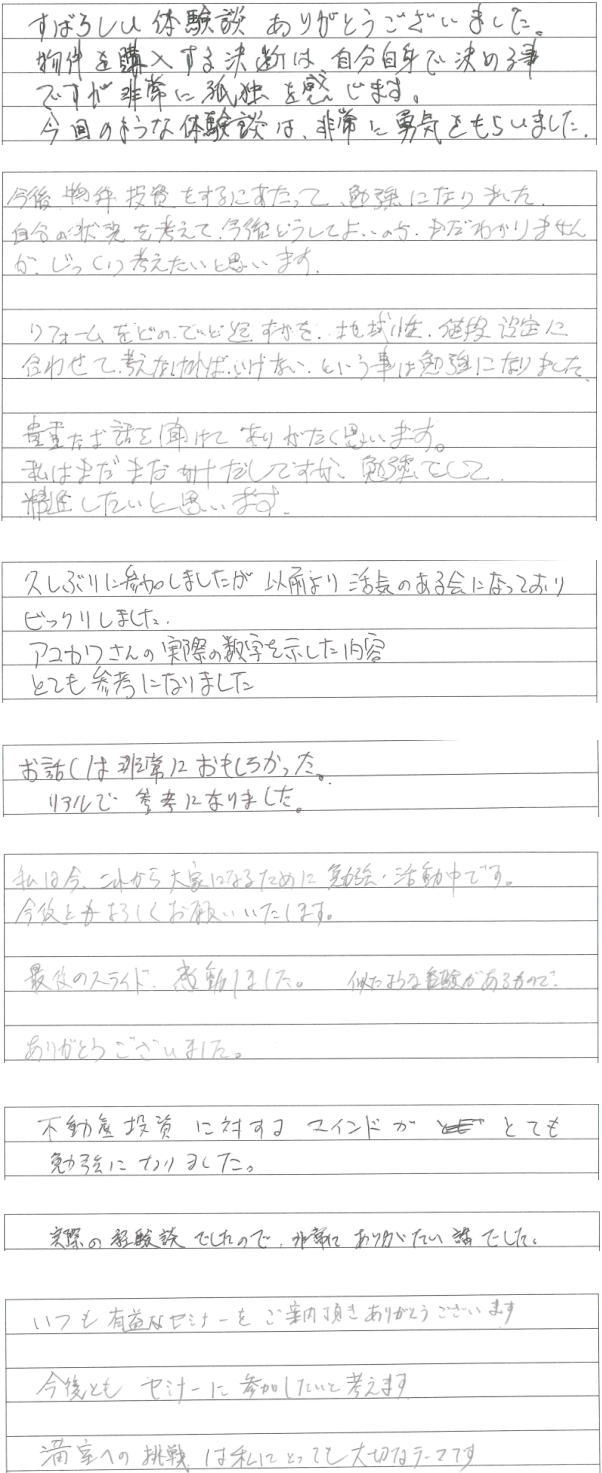 すばらしい体験談 ありがとうございました。
物件を購入する決断は、自分自身で決める事
ですが非常に孤独を感じます。
今回のような体験談は、非常に勇気をもらいました。
今後 物件投資をするにあたって、勉強になりました。
自分の状況を考えて、今後どうしてよいのか、まだわかりません
が、じっくり考えたいと思います。
リフォームをどのていど迄するかを、地域性、値段設定に
合わせて、考えなければいけない、という事は勉強になりました。
貴重なお話を聞けて ありがたく思います。
私はまだまだかけだしですが、勉強をして
精進したいと思います。
久しぶりに参加しましたが 以前より活気のある会になっており
ビックリしました。
アユカワさんの実際の数字を示した内容
とても参考になりました
お話しは非常におもしろかった。
リアルで 参考になりました。
私は今、これから大家になるために勉強・活動中です。
今後ともよろしくお願いいたします。
最後のスライド、感動しました。 似たような経験があるもので。
ありがとうございました。
不動産投資に対する マインドが とても
勉強になりました。
実際の経験談でしたので、非常に ありがたい話でした。
いつも有益なセミナーをご案内頂きありがとうございます
今後とも セミナーに参加したいと考えます
満室への挑戦 は私にとっても大切なテーマです